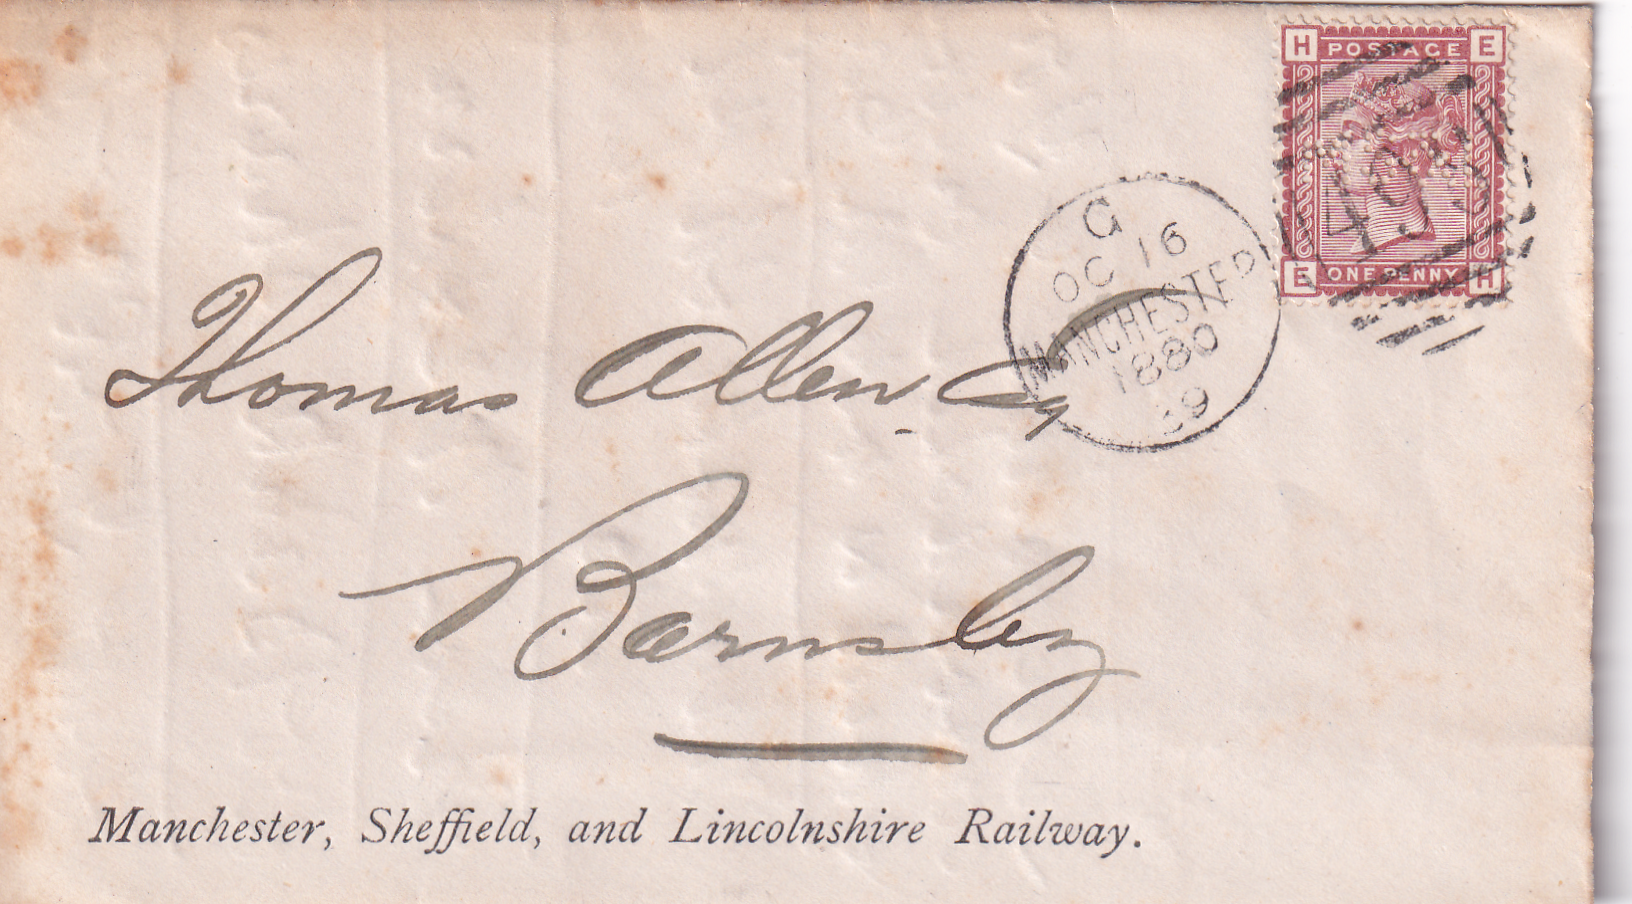 H POSTAGE E
498
E ONE PENNY H
G
OC 16
MANCHESTER
1880
Thomas Allen Esq
Barnsley
Manchester, Sheffield, and Lincolnshire Railway.